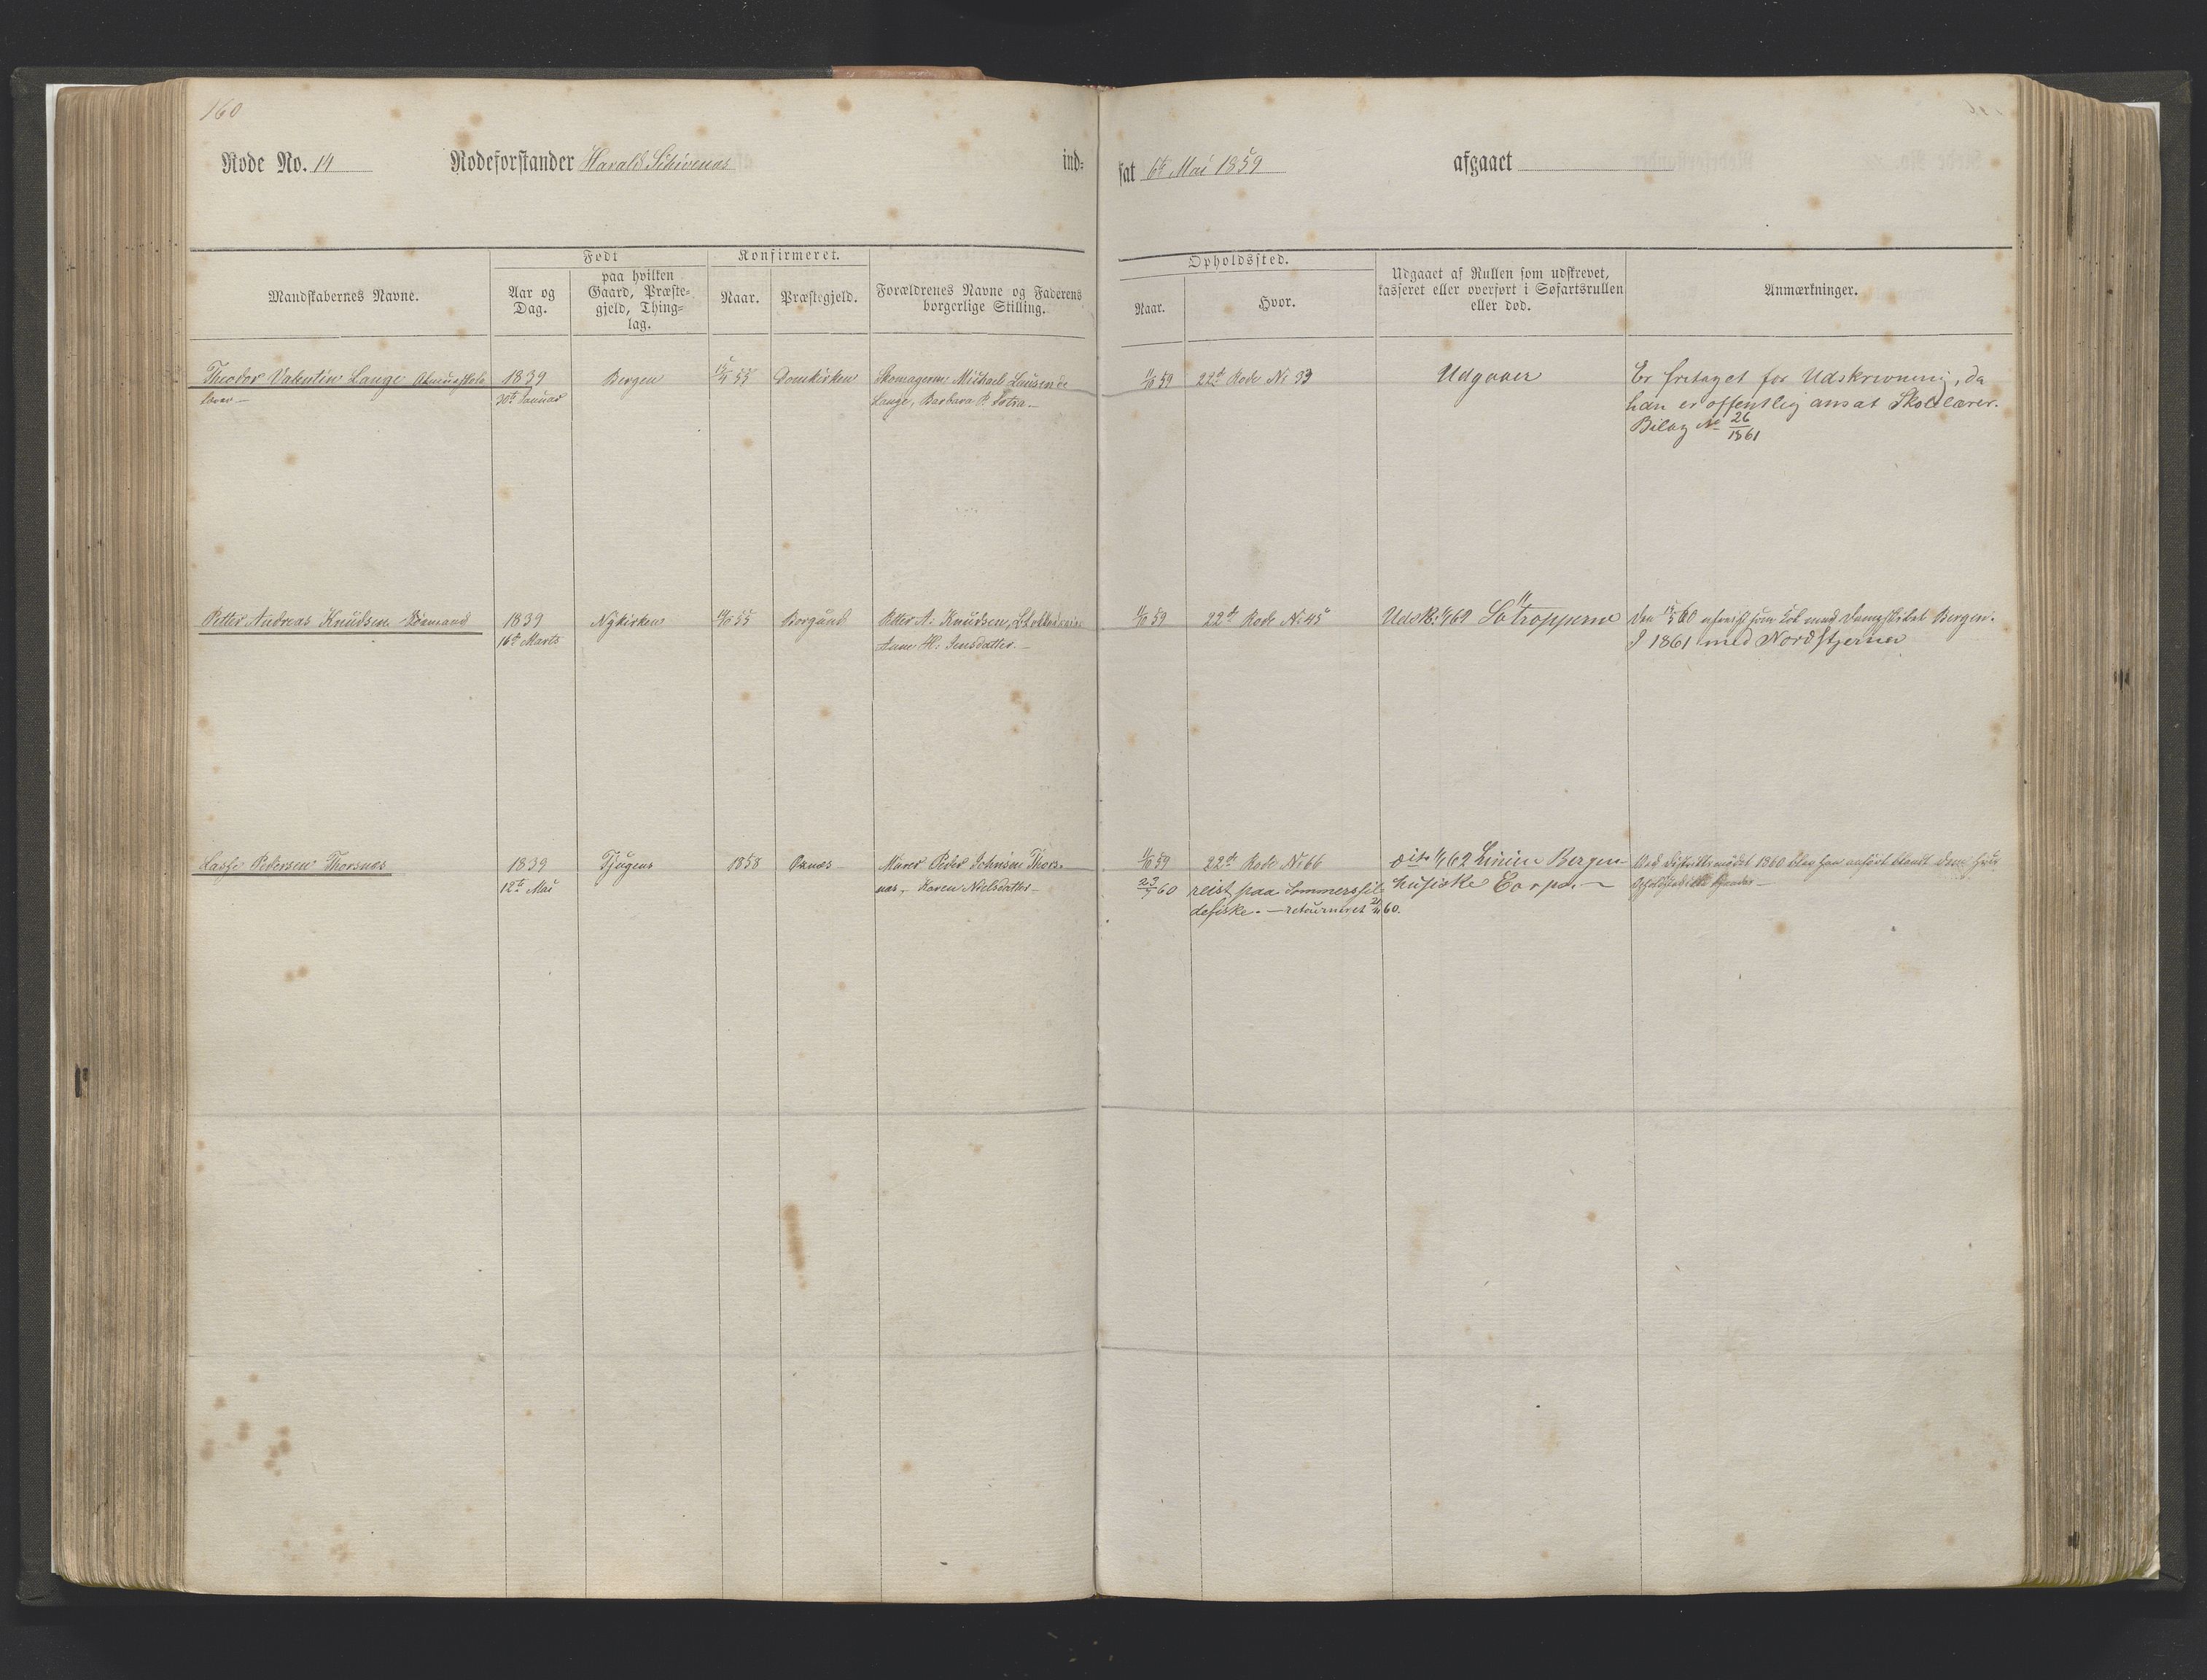 160
Rode No. 14 Rodeforstander Harald ind-
sat 6te Mai 1859 afgaaet
Mandskabernes Navne.
Født
Aar og
Dag.
paa hvilken
Gaard, Præste-
gjeld, Thing-
lag.
Konfirmeret.
Naar. Præstegjeld.
Forældrenes Navne og Faderens
borgerlige Stilling.
Opholdssted.
Naar. Hvor.
Udgaaet af Rullen som udskrevet,
kasseret eller overført i Søfartsrullen
eller død.
Anmærkninger.
Theodor Valentin Lange Almueskole
lærer
1839
30te Januar
Bergen
55 Domkirken
Skomagerm. Michael
Lange, Barbara P. Sotra
59 22de Rode No 33
Udgaaer
Er fritaget for Udskrivning, da
han er offentlig ansat Skolelærer.
Bilag No 26/1861
Petter Andreas Knudsen Sømand
1839
16de Marts
Nykirken
55 Borgund
Petter A. Knudsen,
Anne M. Jensdatter
59 22de Rode No 45
Søtropperne
Den 60 afreist som med Dampskibet Bergen.
I 1861 med Nordstjernen
Lasse Pedersen Thorsnæs
1839
12te Mai
Tjugene
1858 Oxnæs
Murer Peder Johnsen Thors-
næs, Karen Nielsdatter
59 22de Rode No 66
60 reist paa Sommersil-
defiske. — retourneret 60.
dito 62 Linien Bergen-
husiske Corps.
Ved 1860 blev han anført blandt dem hvis